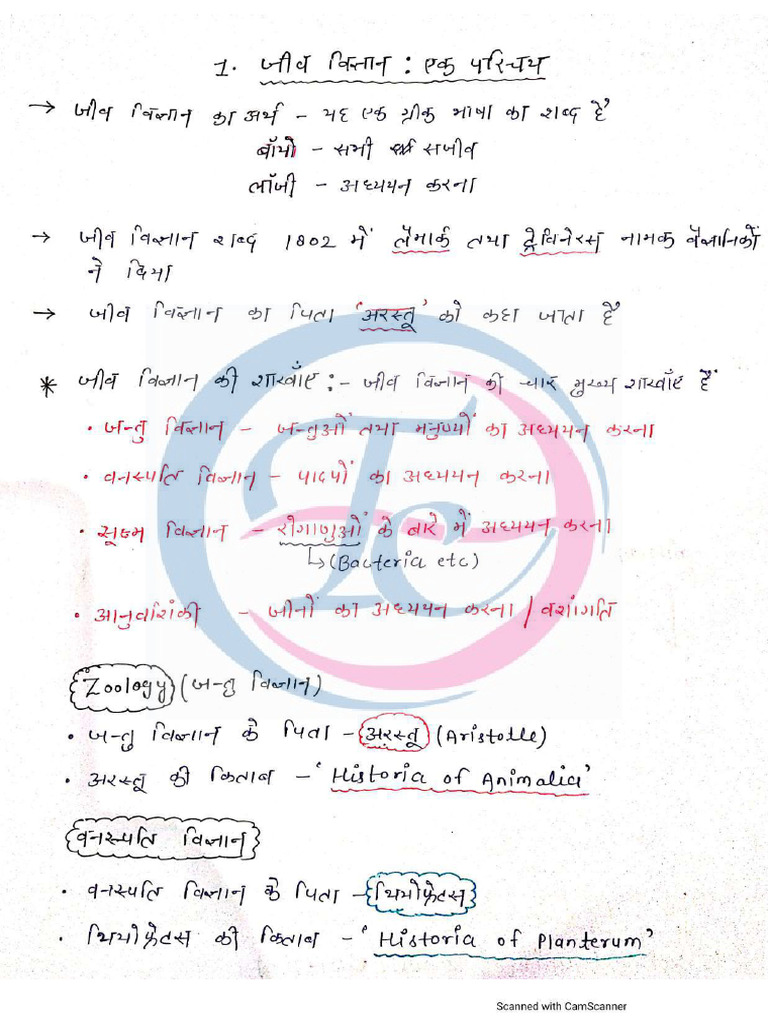 1. जीव विज्ञान : एक परिचय
→ जीव विज्ञान का अर्थ - यह एक ग्रीक भाषा का शब्द है
बॉयो - सभी सजीव
लॉजी - अध्ययन करना
→ जीव विज्ञान शब्द 1802 में लैमार्क तथा ट्रेविनेरस नामक वैज्ञानिकों
ने दिया
→ जीव विज्ञान का पिता 'अरस्तू' को कहा जाता है
* जीव विज्ञान की शाखाँए :- जीव विज्ञान की चार मुख्य शाखाँए हैं
• जन्तु विज्ञान - जन्तुओं तथा मनुष्यों का अध्ययन करना
• वनस्पति विज्ञान - पादपों का अध्ययन करना
• सूक्ष्म विज्ञान - रोगाणुओं के बारे में अध्ययन करना
↳ (Bacteria etc)
• आनुवांशिकी - जीनों का अध्ययन करना / वशांगति
Zoology (जन्तु विज्ञान)
• जन्तु विज्ञान के पिता - अरस्तू (Aristolle)
• अरस्तू की किताब - 'Historia of Animalia'
वनस्पति विज्ञान
• वनस्पति विज्ञान के पिता - थियोफ्रेटस
• थियोफ्रेटस की किताब - 'Historia of Planterum'
Scanned with CamScanner